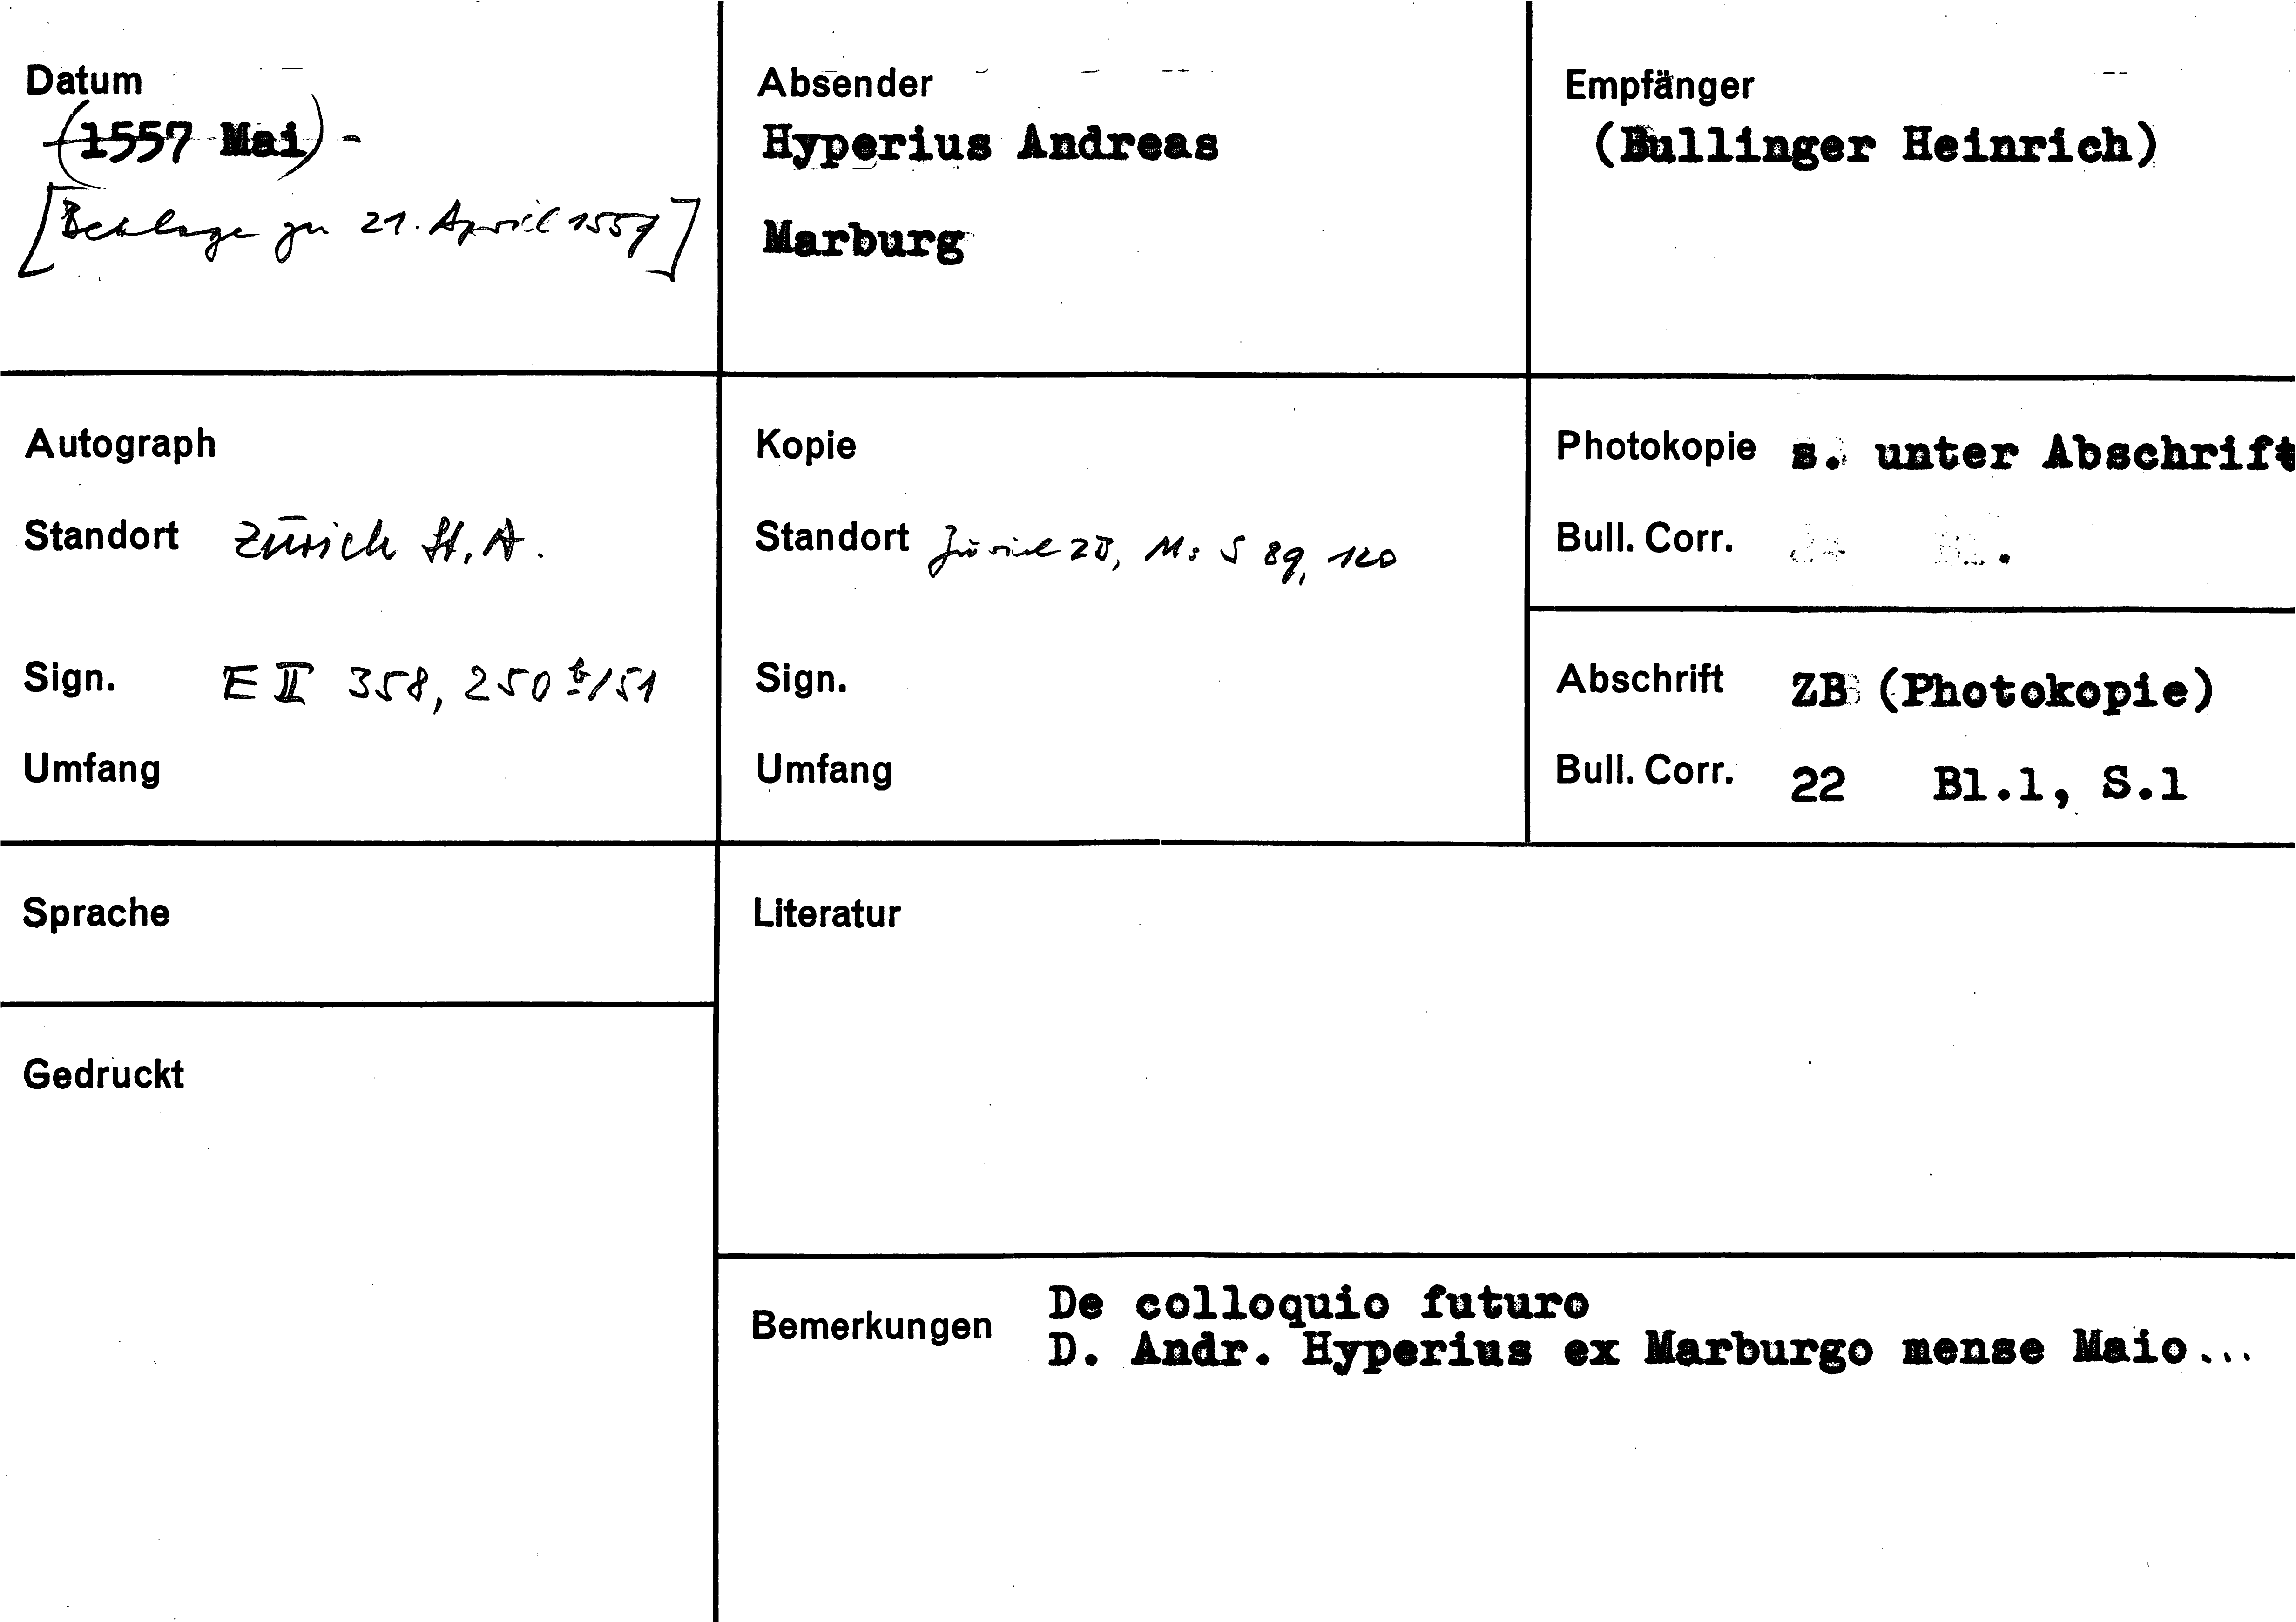 Datum
(1557 Mai) -
[Beilage zu 21. April 1557]
Absender
Hyperius Andreas
Marburg
Empfänger
(Bullinger Heinrich)
Autograph
Standort Zürich St.A.
Sign. E II 358, 250 b/51
Umfang
Kopie
Standort Zürich ZB, Ms S 89, 120
Sign.
Umfang
Photokopie s. unter Abschrift
Bull. Corr.
Abschrift ZB (Photokopie)
Bull. Corr. 22 Bl.1, S.1
Sprache
Literatur
Gedruckt
Bemerkungen De colloquio futuro
D. Andr. Hyperius ex Marburgo mense Maio...